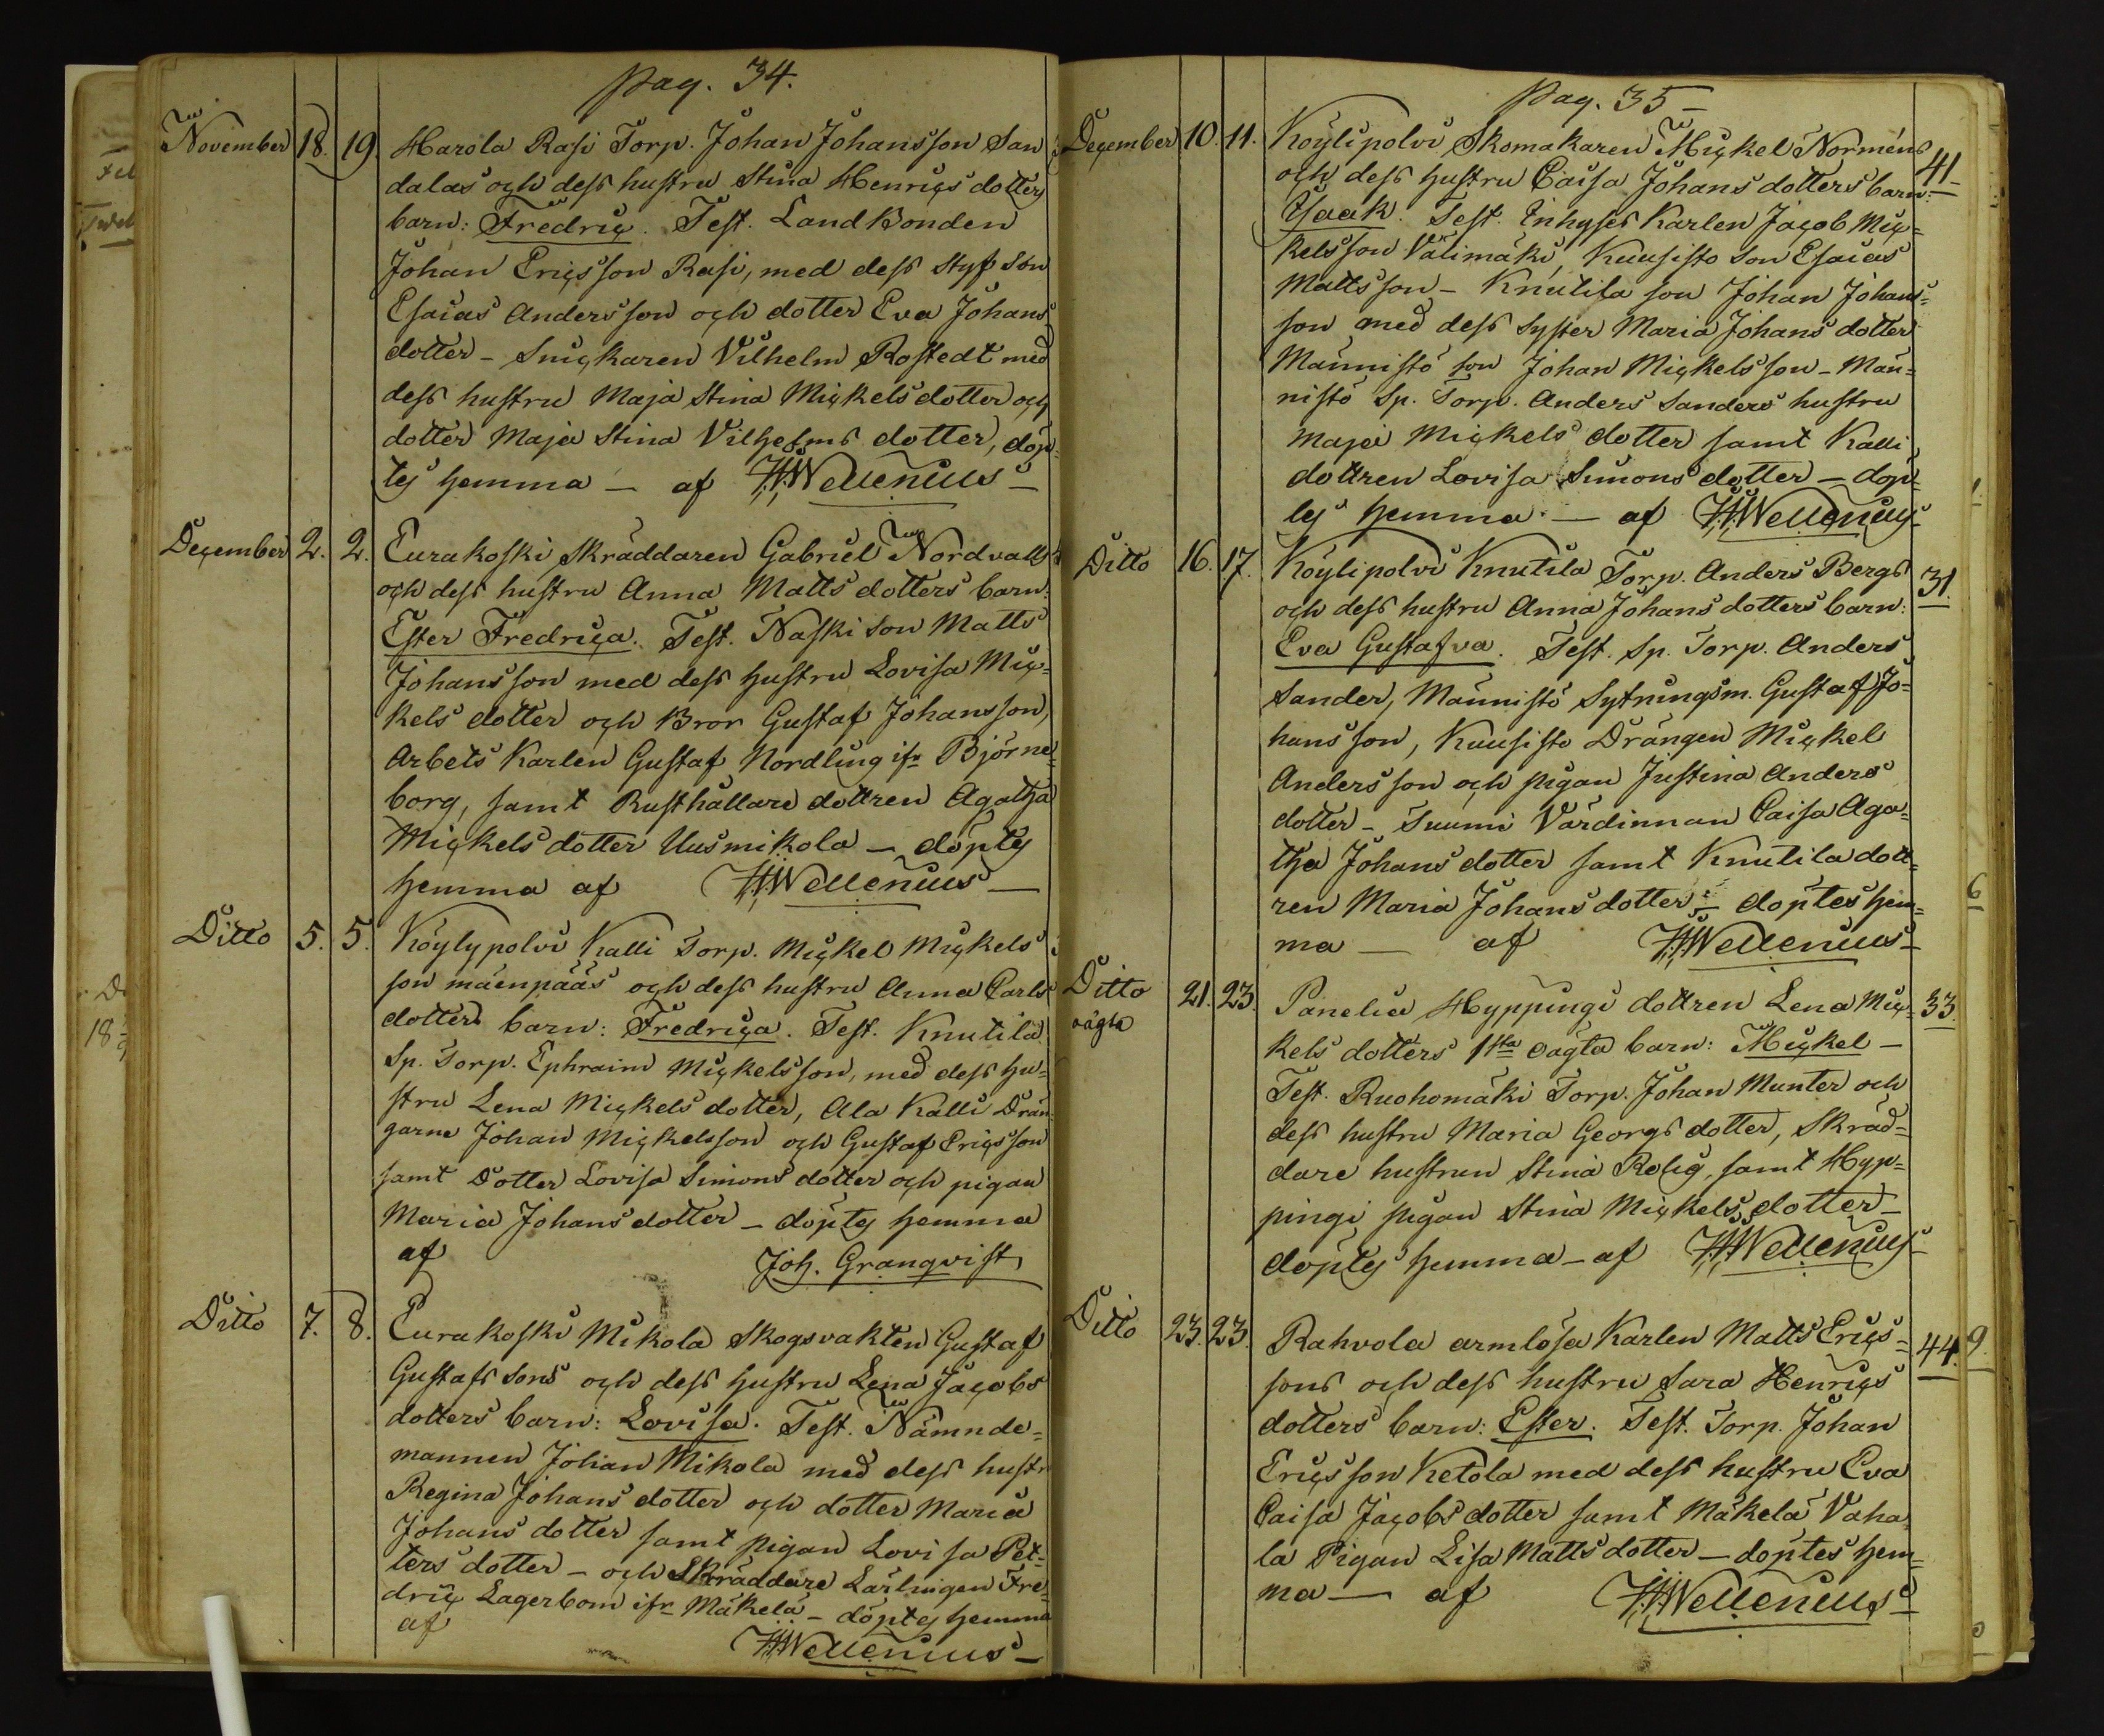 pag. 34.
November 18. 19. Harola Rasi Torp. Johan Johansson San
dalas och dess hustru Stina Henrics dotters
barn: Fredric. Test. LandBonden
Johan Ericsson Rasi, med dess styf son
Esaias Andersson och dotter Eva Johans
dotter – Snickaren Vilhelm Rostedt med
dess hustru Maja Stina Mickels dotter och
dotter Maja Stina Vilhelms dotter, döp-
tes hemma – af HWellenius –
December 2. 2. Eurakoski Skräddaren Gabriel Nordvalls
och dess hustru Anna Matts dotters barn:
Ester Fredrica. Test. Naski son Matts
Johansson med dess hustru Lovisa Mic=
kels dotter och Bror Gustaf Johansson,
Arbets Karlen Gustaf Nordling ifr Björne=
borg, samt Rusthållare dottren Agatha
Mickels dotter Uusmikola – döptes
hemma af HWellenius –
Ditto 5. 5. Köylypolvi Kalli Torp. Mickel Mickels
son mäenpääs och dess hustru Anna Carls
dotters barn: Fredrica. Test. Knutila
Sp. Torp. Ephraim Mickelsson, med dess hu=
stru Lena Mickels dotter, Ala Kalli Drän
garne Johan Mickelsson och Gustaf Ericsson
samt Dotter Lovisa Simons dotter och pigan
Maria Johans dotter – döptes hemma
af Joh. Granqvist
Ditto 7. 8. Eurakoski Mikola Skogsvakten Gustaf
Gustafs sons och dess hustru Lena Jacobs
dotters barn: Lovisa. Test. Nämnde=
mannen Johan Mikola med dess hustr
Regina Johans dotter och dotter Maria
Johans dotter samt pigan Lovisa Pet=
ters dotter – och Skräddare Lärlingen Fre=
dric Lagerbom ifr Mäkelä – döptes hemma
af HWellenius –
pag. 35 –
December 10. 11. Köylipolvi Skomakaren Mickel Norméns
och dess hustru Caisa Johans dotters barn: 41
Isaak. Test. Inhyses Karlen Jacob Mic=
kelsson Välimäki, Kuusisto son Esaias
Mattsson – Knutila son Johan Johans=
son med dess syster Maria Johans dotter
Männistö son Johan Mickelsson – Män=
nistö Sp. Torp. Anders Sanders hustru
Maja Mickels dotter samt Kalli
dottren Lovisa Simons dotter – döp=
tes hemma – af HWellenius
Ditto 16. 17. Köylipolvi Knutila Torp. Anders Bergs 31.
och dess hustru Anna Johans dotters barn:
Eva Gustafva. Test. Sp. Torp. Anders
Sander, Männistö Sytningsm. Gustaf Jo=
hansson, Kuusisto Drängen Mickel
Andersson och pigan Justina Anders
dotter – Suumi Värdinnan Caisa Aga=
tha Johans dotter samt Knutila dott=
ren Maria Johans dotter – döptes hem=
ma – af HWellenius –
Ditto 21. 23. Panelia Hyppingi dottren Lena Mic= 33.
oägta kels dotters 1sta oägta barn: Mickel –
Test. Ruohomäki Torp. Johan Munter och
dess hustru Maria Georgs dotter, Skräd=
dare hustrun Stina Relig, samt Hyp=
pingi pigan Stina Mickels dotter –
döptes hemma – af HWellenius
Ditto 23. 23. Rahvola armlösa Karlen Matts Erics= 44.
sons och dess hustru Sara Henrics
dotters barn: Ester. Test. Torp. Johan
Ericsson Ketola med dess hustru Eva
Caisa Jacobs dotter samt Mäkelä Vaha
la Pigan Lisa Matts dotter – döptes hem=
ma – af HWellenius –